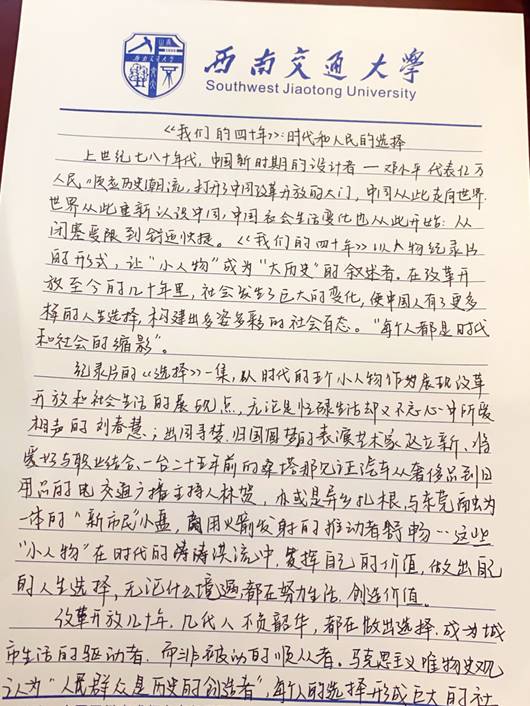 西南交通大学
Southwest Jiaotong University
《我们的四十年》:时代和人民的选择
上世纪七八十年代，中国新时期的设计者——邓小平代表亿万
人民顺应历史潮流，打开了中国改革开放的大门，中国从此走向世界，
世界从此重新认识中国，中国社会生活变化也从此开始：从
闭塞受限到舒适快捷。《我们的四十年》以人物纪录片
的形式，让"小人物"成为"大历史"的叙述者。在改革开
放至今的几十年里，社会发生了巨大的变化，使中国人有了更多
择的人生选择，构建出多姿多彩的社会百态。"每个人都是时代
和社会的缩影"。
纪录片的《选择》一集，从时代的五个小人物作为展现改革
开放和社会生活的展现点，无论是忙碌生活却又不忘心中所爱
相声的刘春慧；出国寻梦、归国圆梦的表演艺术家赵立新、将
爱好与职业结合、一台二十五年前的桑塔那见证汽车从奢侈品到日
用品的电交通广播主持人林贺，亦或是异乡扎根，与东莞融为
一体的"新市民"小盛，商用火箭发射的推动者舒畅…这些
"小人物"在时代的涛涛洪流中，发挥自己的价值，做出自己
的人生选择，无论什么境遇都在努力生活，创造价值。
改革开放几十年，几代人不负韶华，都在做出选择，成为城
市生活的驱动者，而非被动的顺从者。马克思主义唯物史观
认为"人民群众是历史的创造者"，每个人的选择形成巨大的社